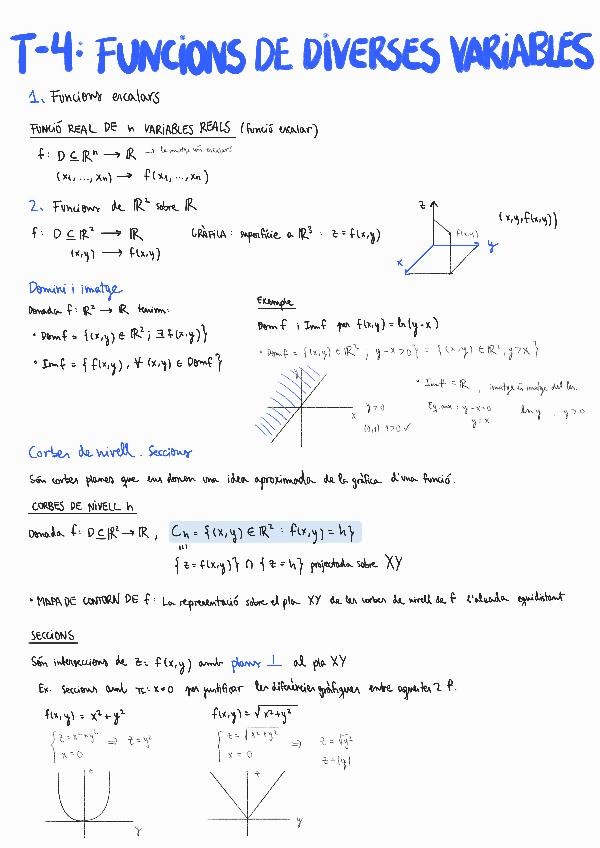 T-4: FUNCIONS DE DIVERSES VARIABLES
1. Funcions escalars
FUNCIÓ REAL DE n VARIABLES REALS (funció escalar)
f: D ⊆ ℝⁿ → ℝ → la imatge són escalars
(x₁, ..., xₙ) → f(x₁, ..., xₙ)
2. Funcions de ℝ² sobre ℝ
f: D ⊆ ℝ² → ℝ GRÀFICA: superfície a ℝ³ : z = f(x,y)
(x,y) → f(x,y)
z
f(x,y)
(x,y,f(x,y))
x
y
Domini i imatge
Donada f: ℝ² → ℝ tenim:
• Dom f = {(x,y) ∈ ℝ² ; ∃ f(x,y)}
• Im f = { f(x,y), ∀ (x,y) ∈ Dom f}
Exemple
Dom f i Im f per f(x,y) = ln(y-x)
• Dom f = {(x,y) ∈ ℝ², y-x>0} = {(x,y) ∈ ℝ², y>x}
y
x
y>0
(0,1) 1>0 ✓
• Im f = ℝ, imatge és imatge del ln.
y-x=0
y=x
ln y, y>0
Corbes de nivell. Seccions
Són corbes planes que ens donen una idea aproximada de la gràfica d'una funció.
CORBES DE NIVELL h
Donada f: D⊆ℝ² → ℝ, Cₕ = {(x,y) ∈ ℝ² : f(x,y) = h}
{z = f(x,y)} ∩ {z = h} projectada sobre XY
• MAPA DE CONTORN DE f: La representació sobre el pla XY de les corbes de nivell de f l'alçada equidistant
SECCIONS
Són interseccions de z = f(x,y) amb plans ⊥ al pla XY
Ex. seccions amb π: x=0 per justificar les diferències gràfiques entre aquestes 2 f.
f(x,y) = x²+y²
{ z=x²+y²
x=0 ⇒ z=y²
z
y
f(x,y) = √x²+y²
{ z=√x²+y²
x=0 ⇒ z=√y²
z=|y|
z
y